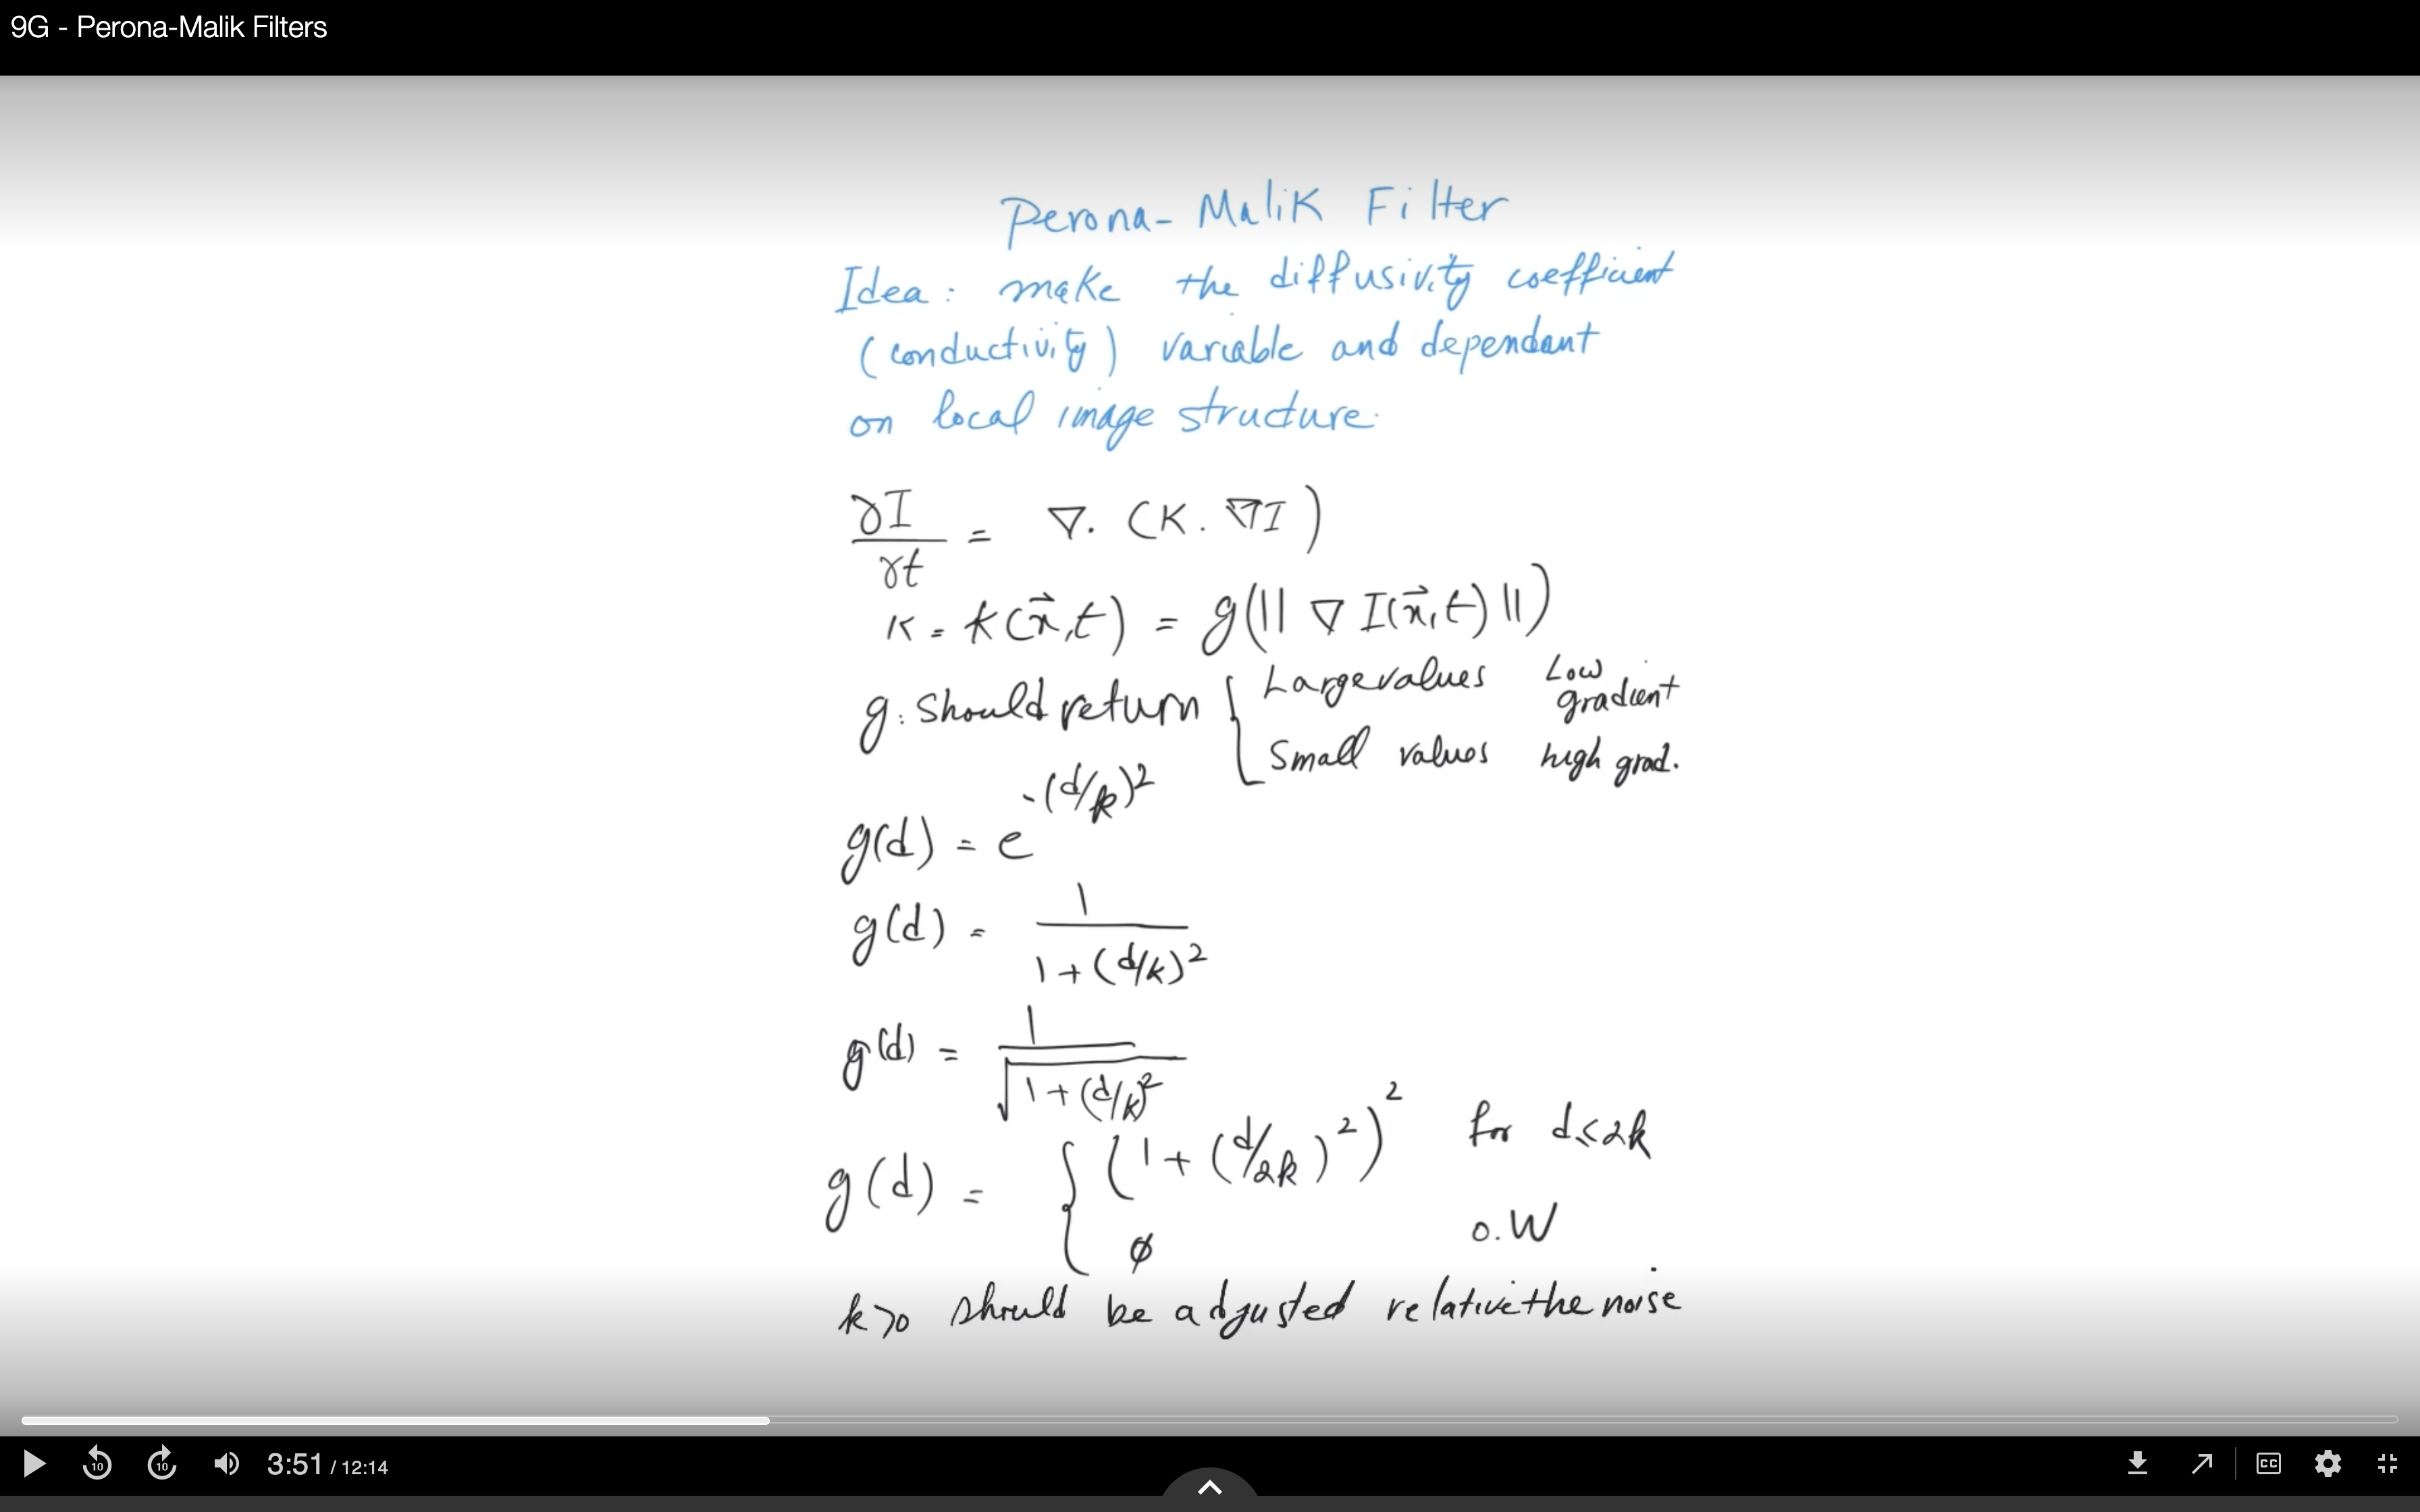 9G - Perona-Malik Filters
Perona-Malik Filter
Idea: make the diffusivity coefficient
(conductivity) variable and dependent
on local image structure.
∂I/∂t = ∇. (K. ∇I)
K = K(x⃗,t) = g(|| ∇ I(x⃗,t) ||)
g: should return { Large values Low gradient
Small values high grad.
g(d) = e^-(d/k)^2
g(d) = 1/(1+(d/k)^2)
g(d) = 1/√(1+(d/k)^2)
g(d) = { (1+(d/2k)^2)^2 for d≤2k
ø o.W
k>0 should be adjusted relative the noise
10 10 3:51 / 12:14 CC